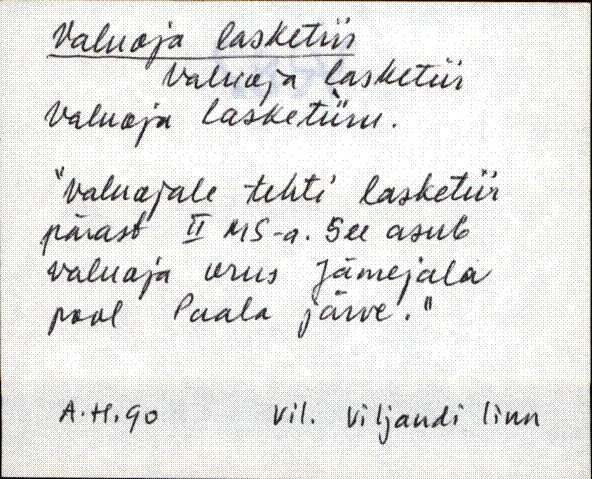 Valuoja lasketiir
Valuoja lasketiir
Valuoja lasketiiru.
"Valuojale tehti lasketiir
pärast II MS-a. See asub
Valuoja orus Jämejala
pool Paala järve."
A.H.90 Vil. Viljandi linn